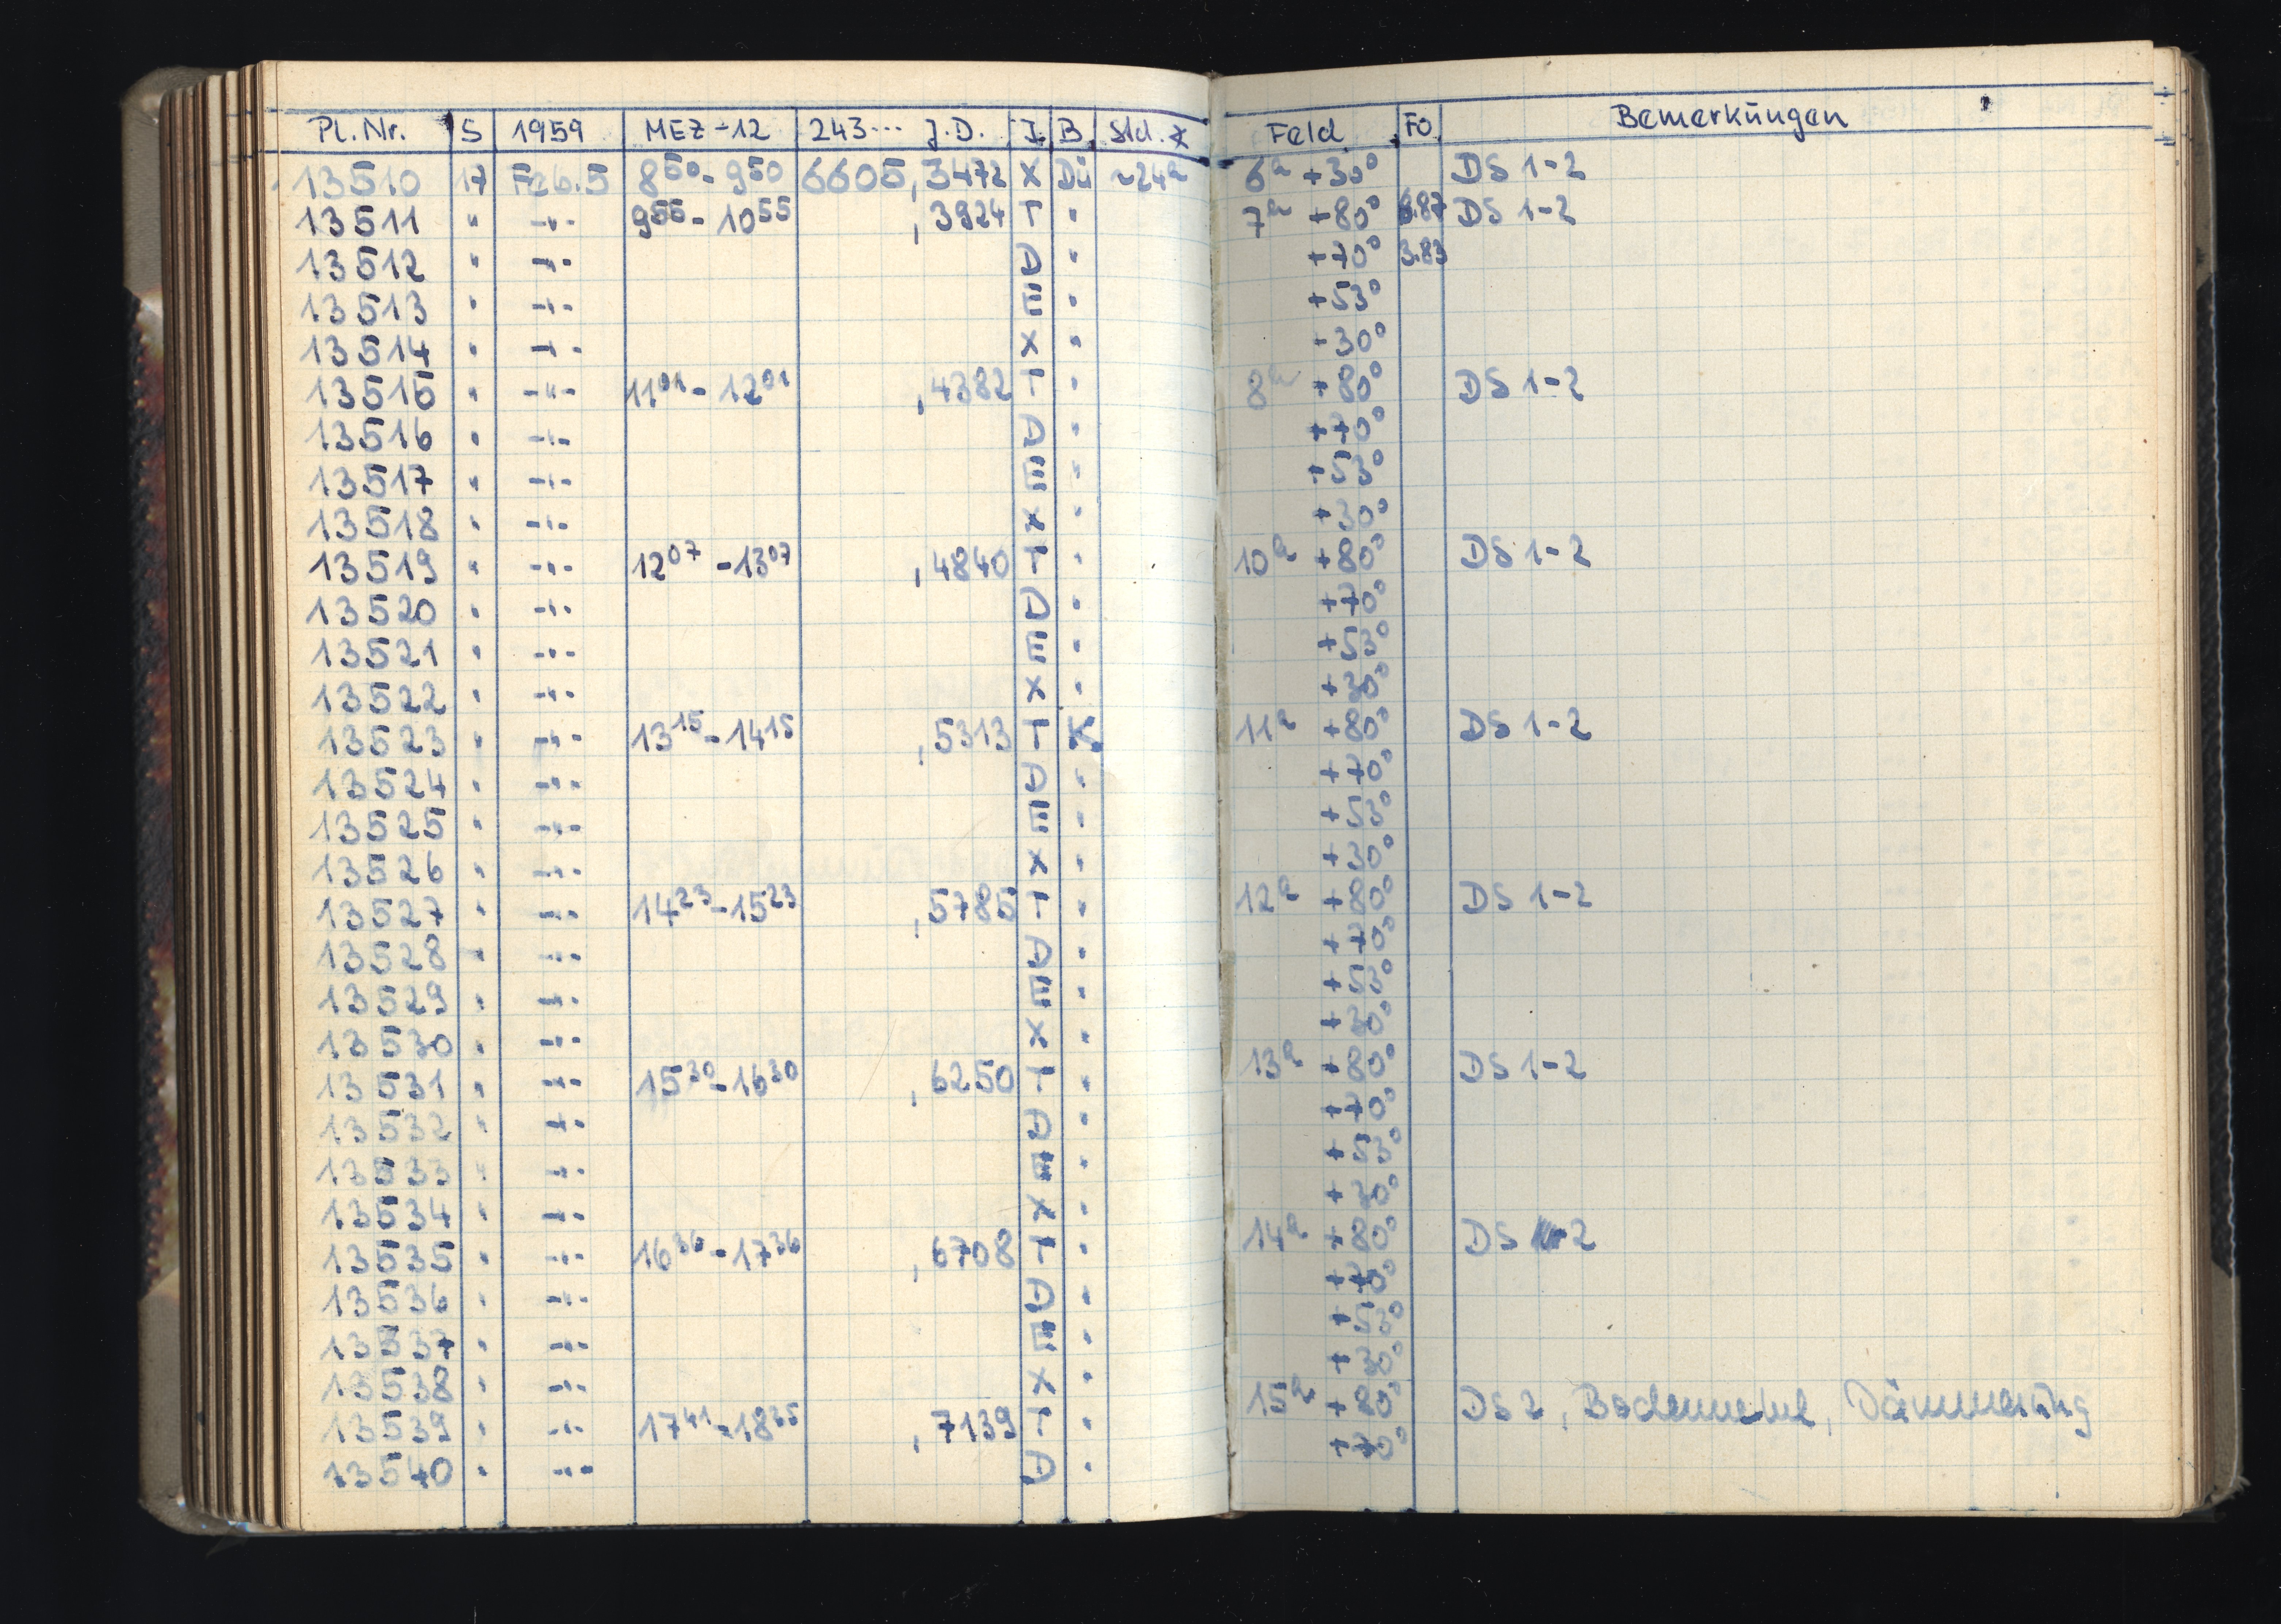 Pl.Nr. S 1959 MEZ-12 243... J.D. J. B. Std. * Feld FO. Bemerkungen
13510 17 Feb.5 8 50 - 9 50 6605,3472 X Dü ~24ª 6ª +30° DS 1-2
13511 " -"- 9 55 - 10 55 ,3924 T " 7ª +80° DS 1-2
13512 " -"- D " +70° 3.83
13513 " -"- E " +53°
13514 " -"- X " +30°
13515 " -"- 11 01 - 12 01 ,4382 T " 8ª +80° DS 1-2
13516 " -"- D " +70°
13517 " -"- E " +53°
13518 " -"- X " +30°
13519 " -"- 12 07 - 13 07 ,4840 T " 10ª +80° DS 1-2
13520 " -"- D " +70°
13521 " -"- E " +53°
13522 " -"- X " +30°
13523 " -"- 13 15 - 14 15 ,5313 T K. 11ª +80° DS 1-2
13524 " -"- D " +70°
13525 " -"- E " +53°
13526 " -"- X " +30°
13527 " -"- 14 23 - 15 23 ,5785 T " 12ª +80° DS 1-2
13528 " -"- D " +70°
13529 " -"- E " +53°
13530 " -"- X " +30°
13531 " -"- 15 30 - 16 30 ,6250 T " 13ª +80° DS 1-2
13532 " -"- D " +70°
13533 " -"- E " +53°
13534 " -"- X " +30°
13535 " -"- 16 36 - 17 36 ,6708 T " 14ª +80° DS 2
13536 " -"- D " +70°
13537 " -"- E " +53°
13538 " -"- X " +30°
13539 " -"- 17 41 - 18 35 ,7139 T " 15ª +80° DS 2, Bodennebel, Dämmerung
13540 " -"- D " +70°